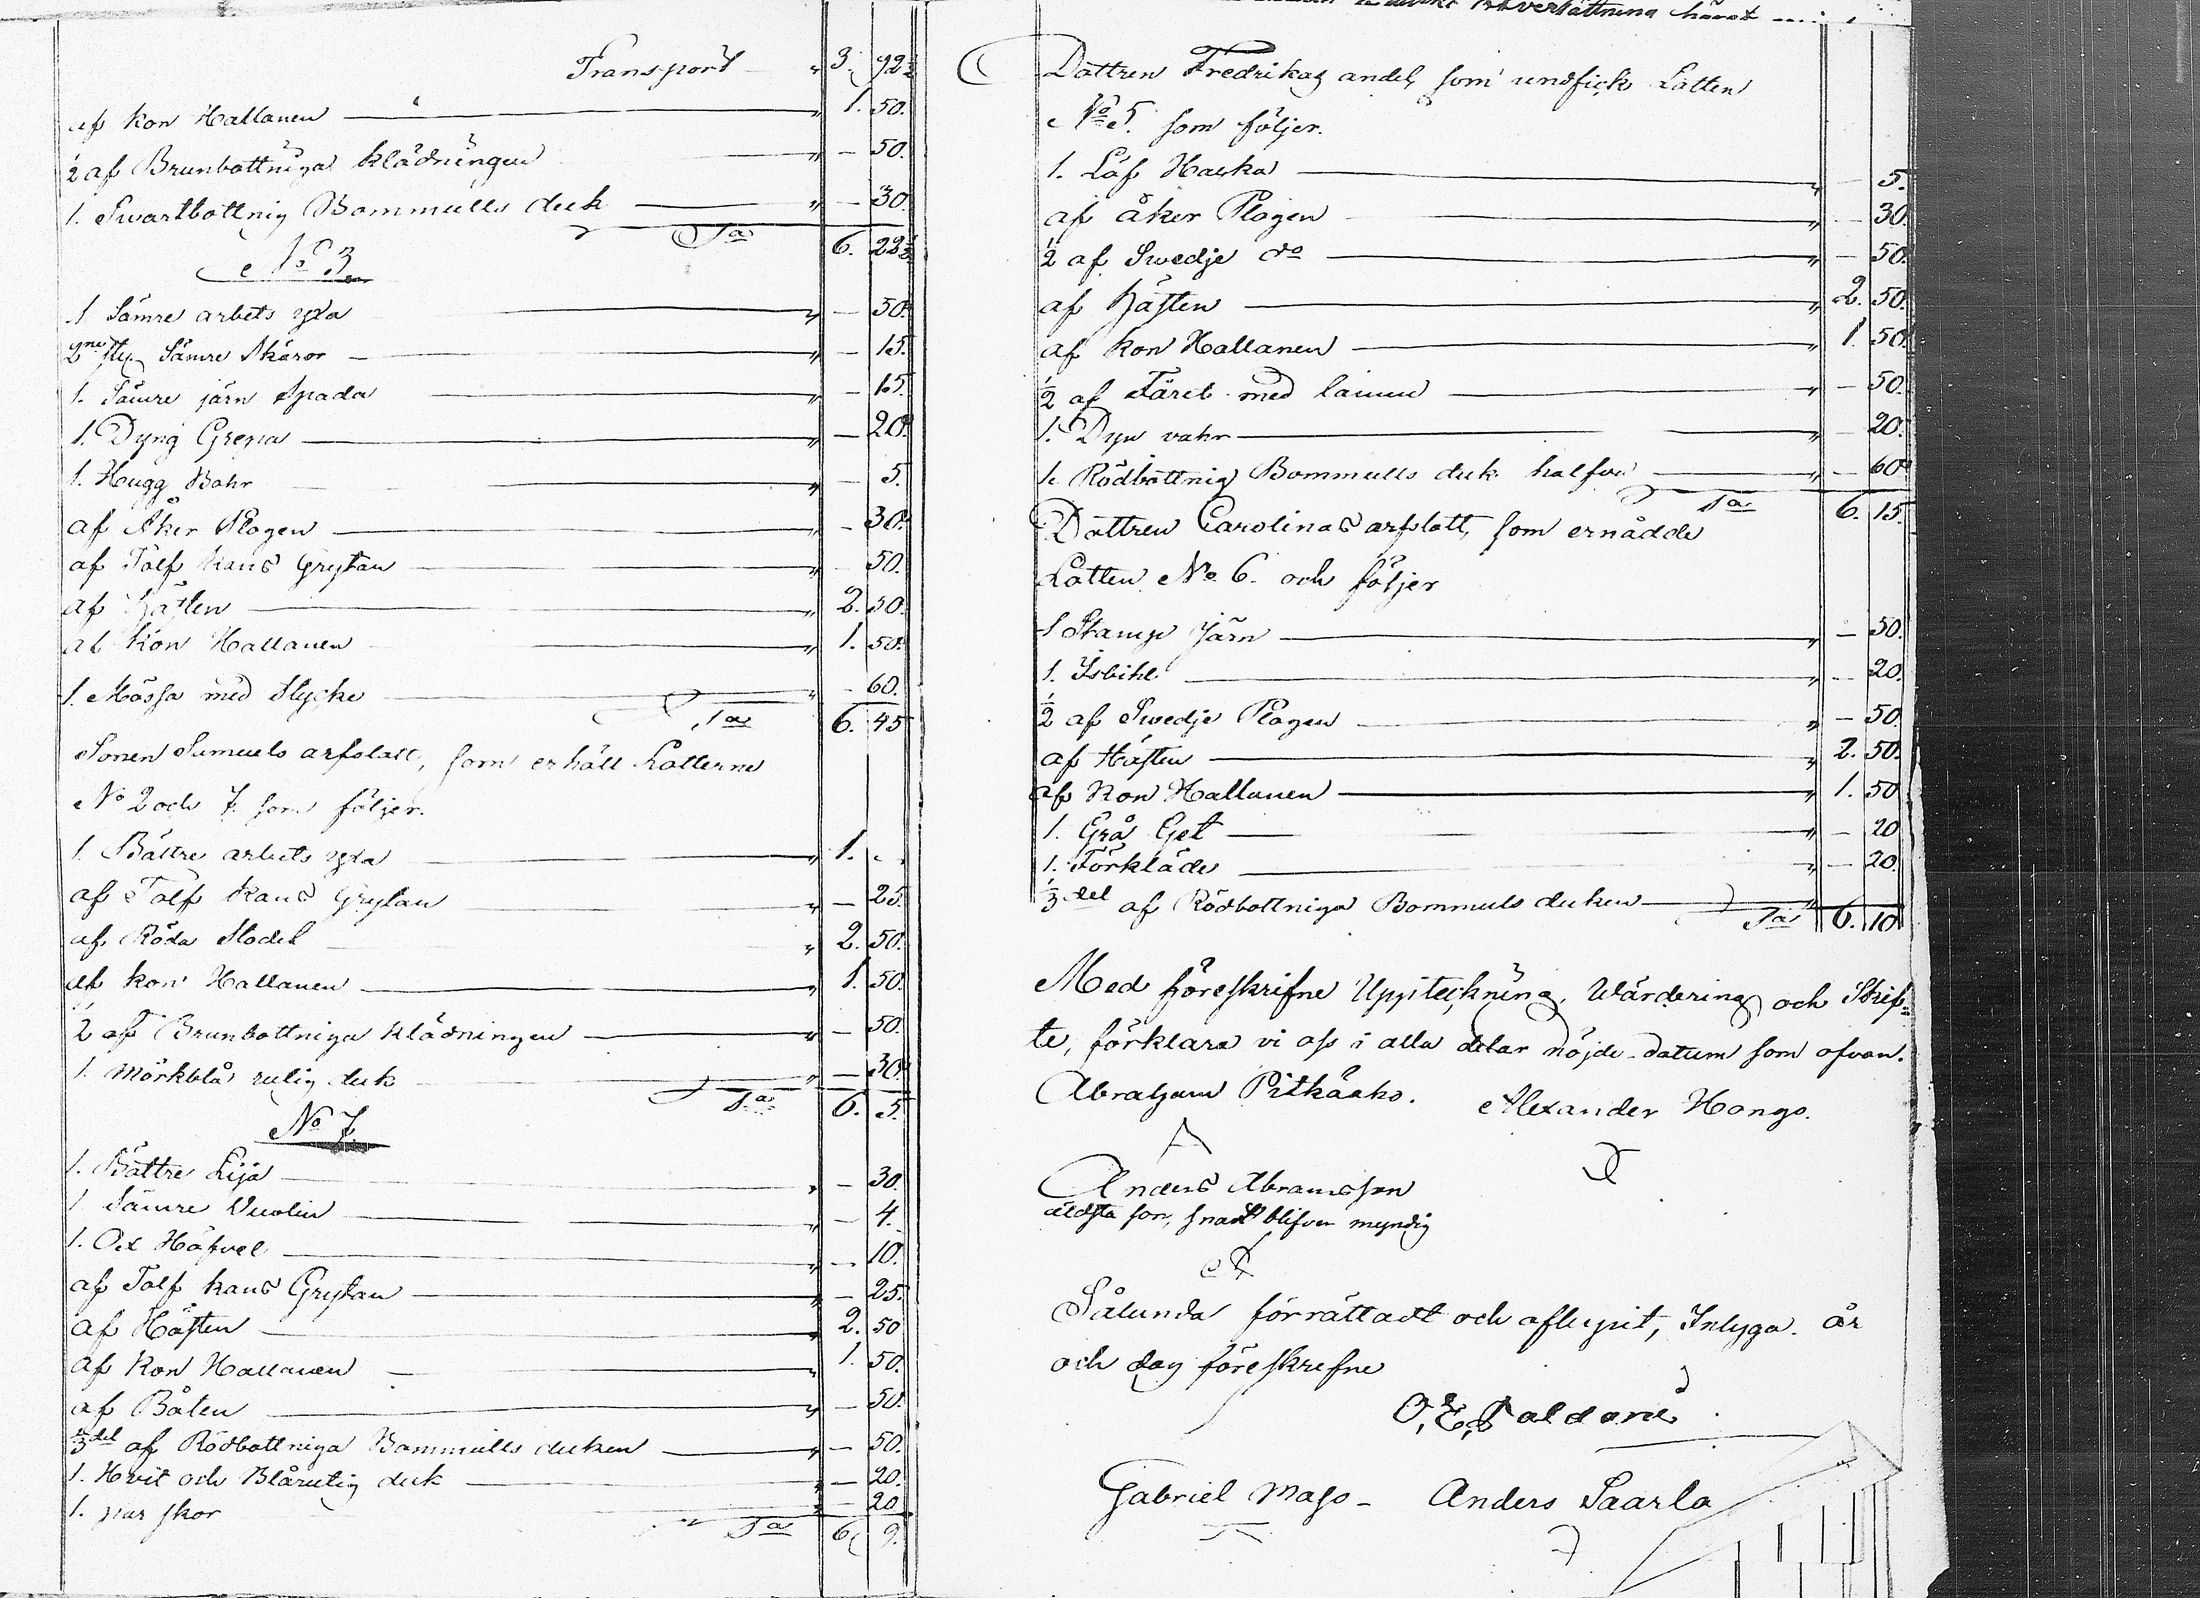 Transport " 3. 92½
af kon Hallanen " 1. 50.
½ af Brunbottniga klädningen " — 50.
1. Swartbottnig Bommulls duk " — 30.
Sa 6. 22½
No 3
1 Sämre arbets yxa " — 50.
2ne sty Sämre Skäror " — 15.
1. Sämre järn Spada — 15.
1. Dyng Grepa " — 20.
1. Hugg Bahr " — 5.
af Åker Plogen " — 30.
af Tolf kans Grytan " 50.
af Hästen " 2. 50.
af kon Hallanen " 1. 50.
1. Mössa med Stycke " — 60.
Sa 6. 45
Sonen Samuels arfslatt, som erhåll Lotterne
No 2 och 7. som följer.
1. Bättre arbets yxa " 1. -.
af Tolf kans Grytan " — 25.
af Röda Stodet " 2. 50.
af kon Hallanen " 1. 50.
½ af Brunbottniga klädningen " — 50.
1. Mörkblå rutig duk " — 30.
Sa 6. 5.
No 7.
1. Bättre Lija " — 30.
1 Sämre Vuolin " — 4.
1. Ox Höfvel " — 10.
af Tolf kans Grytan " — 25.
af Hästen " 2. 50
af Kon Hallanen " 1. 50.
af Båten " — 50.
⅓del af Rödbottniga Bommulls duken " — 50.
1. Hvit och Blårutig duk " — 20.
1. par skor " — 20
Sa 6. 9.
härat
Dottren Fredrikas andel, som undfick Lotten
No 5. som följer.
1. Löf Hacka " — 5.
af åker Plogen " — 30.
½ af Swedje do " — 50.
af Hästen " 2. 50.
af kon Hallanen " 1. 50.
½ af Fåret med lamm " — 50.
1. Dyn vahr " — 20.
1. Rödbottnig Bommulls duk halfva " — 60.
Sa 6. 15.
Dottren Carolinas arfslott, som ernådde
Lotten No 6. och följer
1 Stamp Järn " — 50.
1. Isbihl " — 20.
½ af Swedje Plogen " — 50.
af Hästen " 2. 50.
af Kon Hallanen " 1. 50
1. Grå Get " — 20
1. Förkläde " — 20.
⅓del af Rödbottniga Bommuls duken "
Sa 6. 10
Med föreskrifne Uppteckning, Wärdering och Skif-
te, förklara vi oss i alla delar nöjde. datum som ofvan.
Abraham Pitkäaho. Alexander Hongo.
Anders Abramsson
äldsta son, snart blifven myndig
Sålunda förrättadt och aflupit, Intyga. år
och dag föreskrefne
O. E. Paldani
Gabriel Maso - Anders Saarla